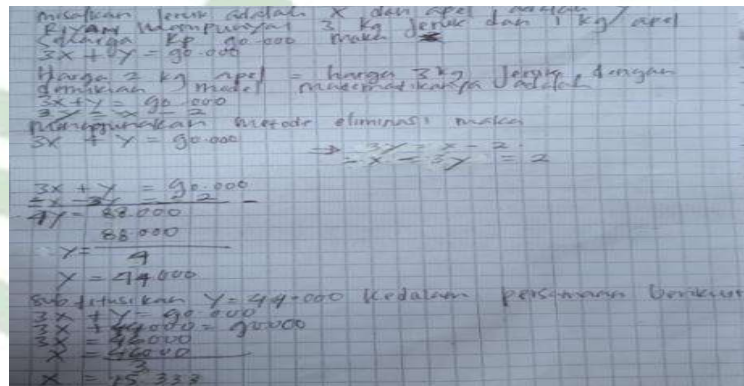 misalkan jeruk adalah x dan apel adalah
RIYAN mempunyai 3 kg jeruk dan 1 kg apel
seharga Rp 90.000 maka
3x + y = 90.000
Harga 2 kg apel = harga 3 kg jeruk, dengan
demikian model matematikanya adalah
3x + y = 90.000
3y = x - 2
menggunakan metode eliminasi maka
3x + y = 90.000
⇒ 3y = x - 2
= x - 3y = 2
3x + y = 90.000
= x - 3y = 2 -
4y = 88.000
88.000
y = 4
y = 44.000
Subtitusikan y = 44.000 kedalam persamaan berikut
3x + y = 90.000
3x + 44.000 = 90.000
3x = 46000
x = 46000
3
x = 15.333